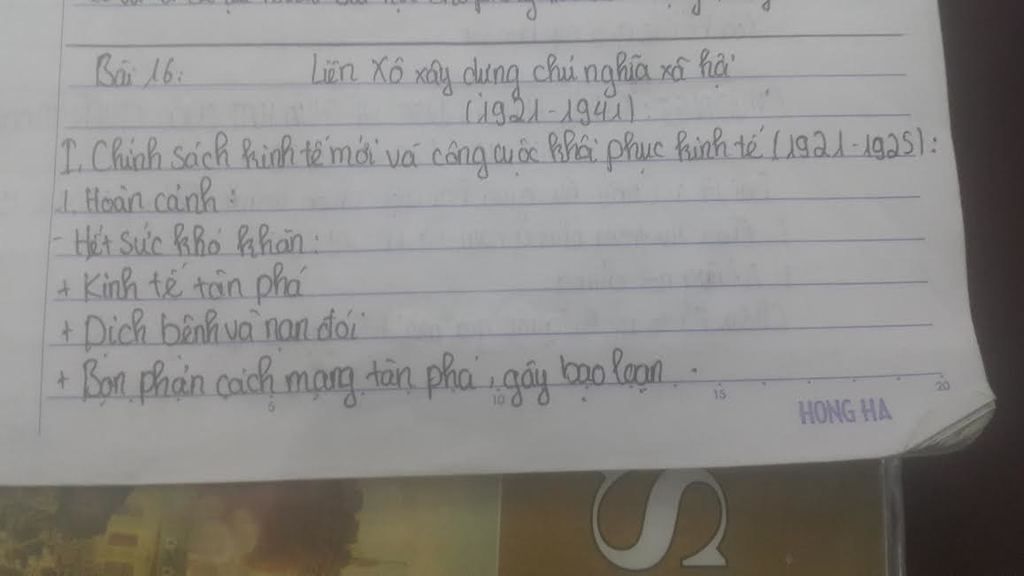 Bài 16: Liên Xô xây dựng chủ nghĩa xã hội
(1921-1941):
I. Chính sách kinh tế mới và công cuộc khôi phục kinh tế (1921-1925):
1. Hoàn cảnh:
- Hết sức khó khăn:
+ Kinh tế tàn phá
+ Dịch bệnh và nạn đói
+ Bọn phản cách mạng tàn phá, gây bạo loạn.
5 10 15 20
HONG HA
S